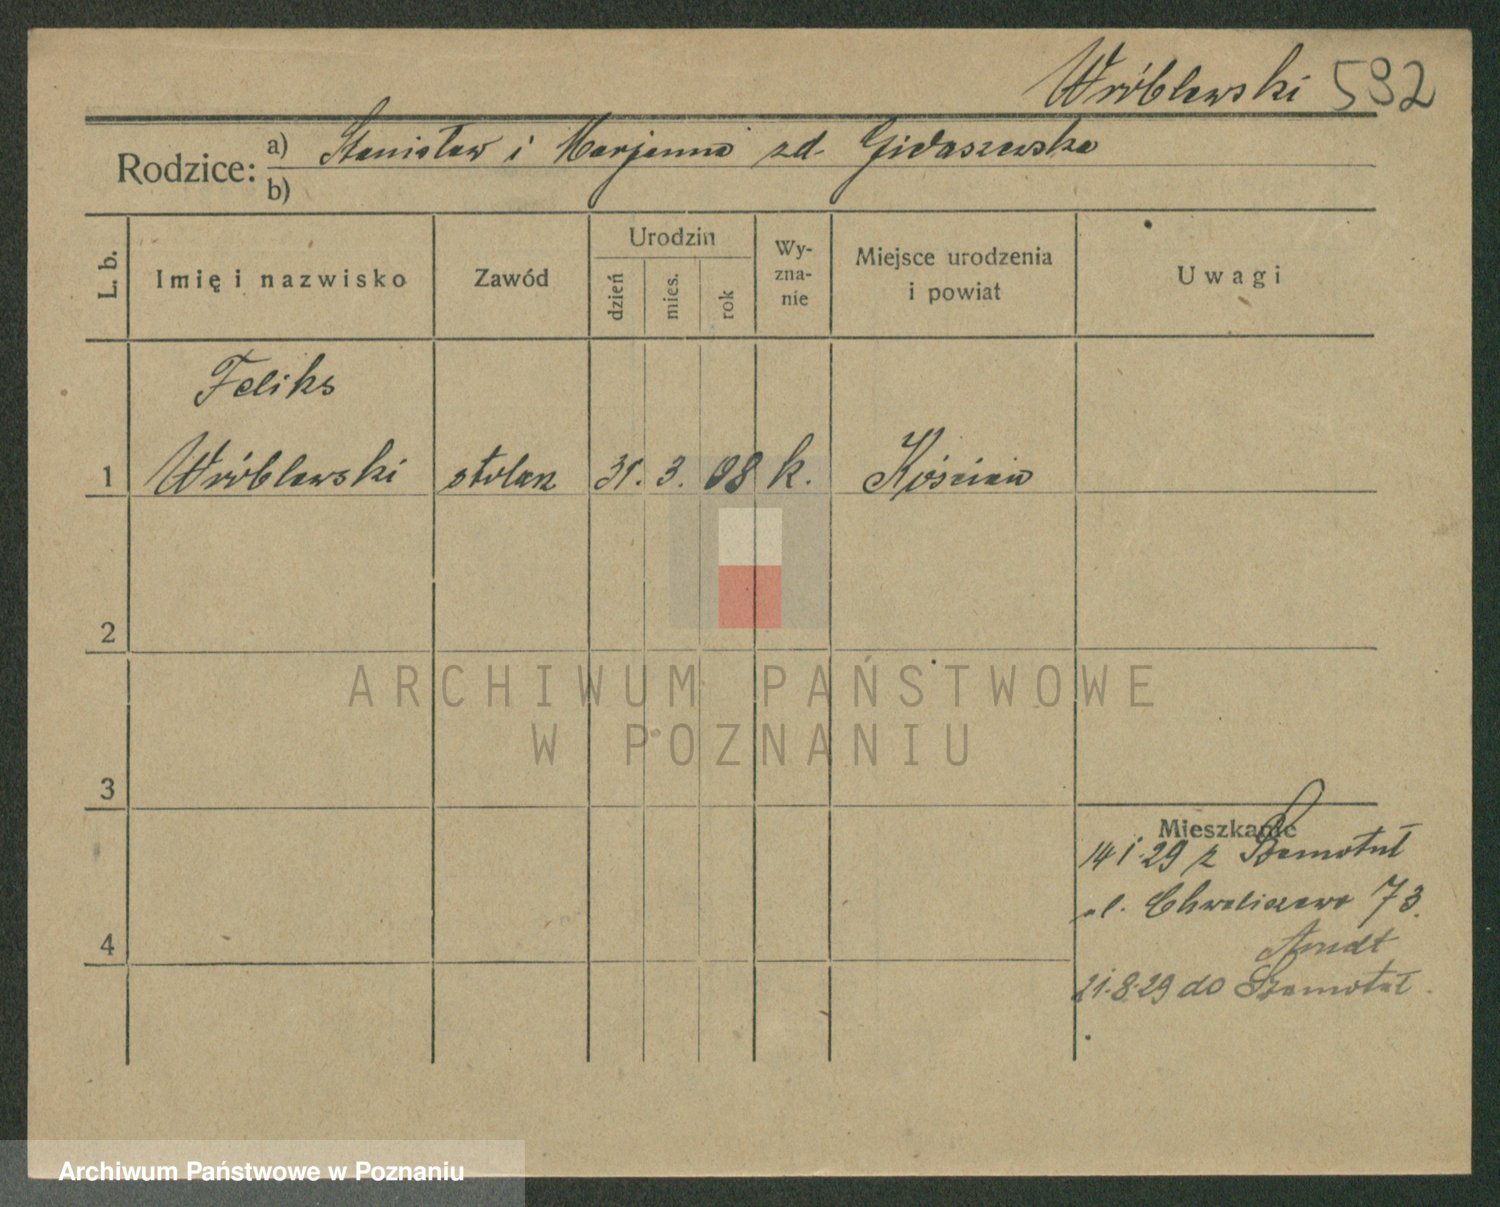 Wróblewski 592
Rodzice: a) Stanisław i Marjanna zd. Gidaszewska
b)
L. b. Imię i nazwisko Zawód Urodzin dzień mies. rok Wyznanie Miejsce urodzenia i powiat Uwagi
Feliks
1 Wróblewski stolarz 31. 3. 08 k. Kościan
2
ARCHIWUM PAŃSTWOWE
W POZNANIU
3
Mieszkanie
14 1.29 z Szamotuł
ul. Chwaliszewo 73.
Arndt
4
21.8.29 do Szamotuł.
Archiwum Państwowe w Poznaniu